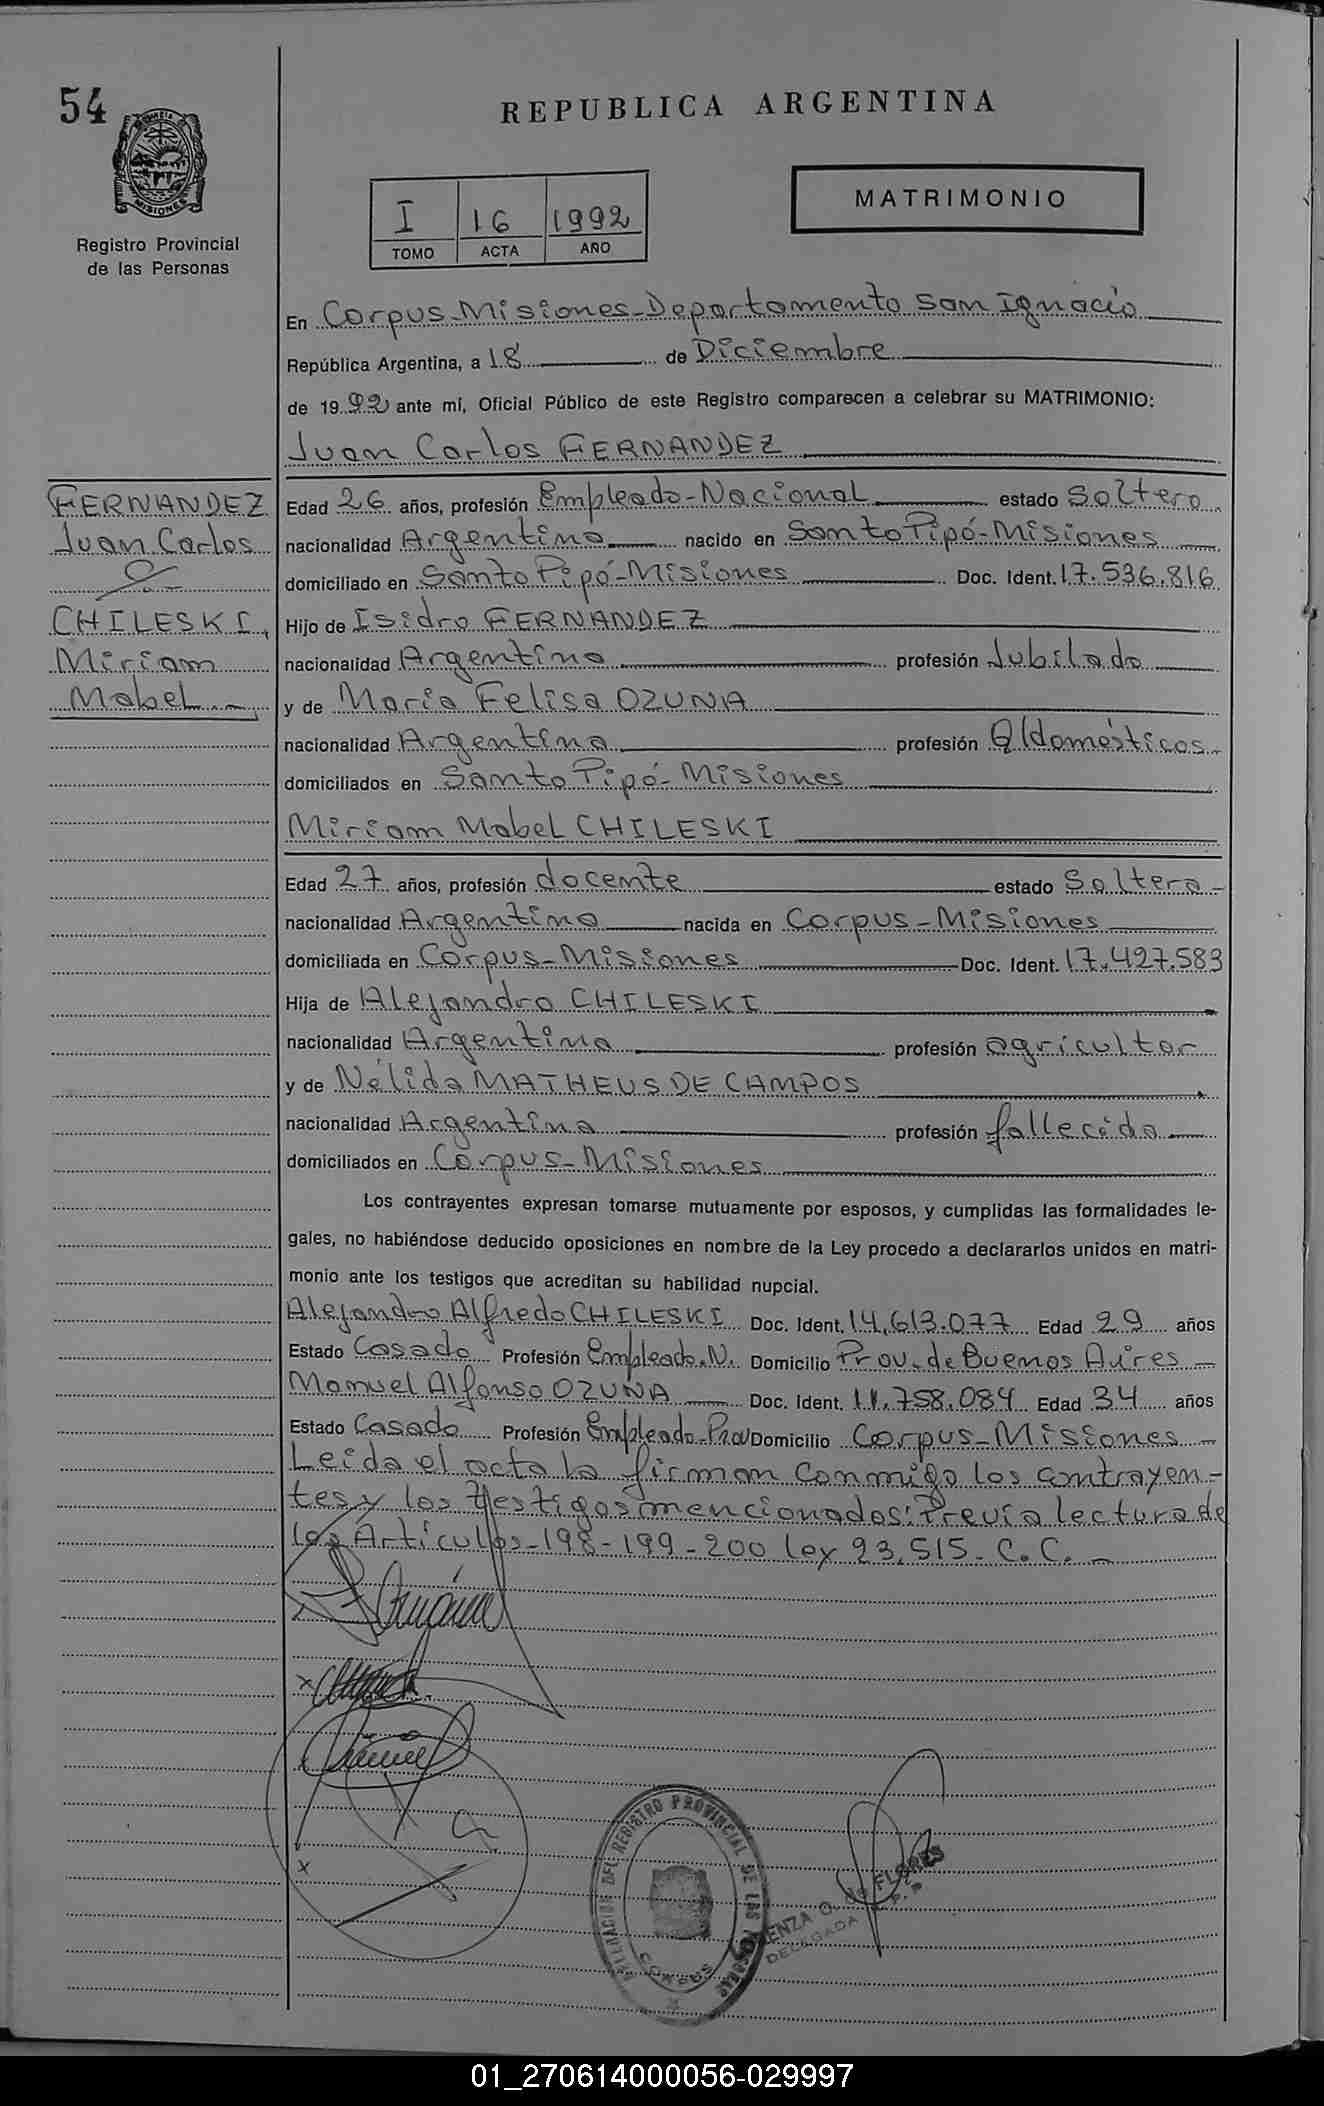 54
MISIONES
Registro Provincial
de las Personas
REPUBLICA ARGENTINA
I 16 1992
TOMO ACTA AÑO
MATRIMONIO
En Corpus-Misiones-Departamento San Ignacio
República Argentina, a 18 de Diciembre
de 1992 ante mí, Oficial Público de este Registro comparecen a celebrar su MATRIMONIO:
Juan Carlos FERNANDEZ
FERNANDEZ
Juan Carlos
CHILESKI,
Miriam
Mabel
Edad 26 años, profesión Empleado-Nacional estado Soltero
nacionalidad Argentino nacido en Santo Pipó-Misiones
domiciliado en Santo Pipó-Misiones Doc. Ident. 17.536.816
Hijo de Isidro FERNANDEZ
nacionalidad Argentino profesión Jubilado
y de Maria Felisa OZUNA
nacionalidad Argentina profesión Q/domésticos
domiciliados en Santo Pipó-Misiones
Miriam Mabel CHILESKI
Edad 27 años, profesión docente estado Soltera
nacionalidad Argentina nacida en Corpus-Misiones
domiciliada en Corpus-Misiones Doc. Ident. 17.427.583
Hija de Alejandro CHILESKI
nacionalidad Argentino profesión agricultor
y de Nélida MATHEUS DE CAMPOS
nacionalidad Argentina profesión fallecida
domiciliados en Corpus-Misiones
Los contrayentes expresan tomarse mutuamente por esposos, y cumplidas las formalidades le-
gales, no habiéndose deducido oposiciones en nombre de la Ley procedo a declararlos unidos en matri-
monio ante los testigos que acreditan su habilidad nupcial.
Alejandro Alfredo CHILESKI Doc. Ident. 14.613.077 Edad 29 años
Estado Casado Profesión Empleado.N. Domicilio Prov. de Buenos Aires
Manuel Alfonso OZUNA Doc. Ident. 11.758.084 Edad 34 años
Estado Casado Profesión Empleado-Prov Domicilio Corpus-Misiones
Leida el acta la firman conmigo los contrayen-
tes y los testigos mencionados: Previa lectura de
los Artículos-198-199-200 ley 23.515-C.C.
DELEGACION DEL REGISTRO PROVINCIAL DE LAS
CORPUS
O. de FLORES
DELEGADA R. P. P.
01_270614000056-029997